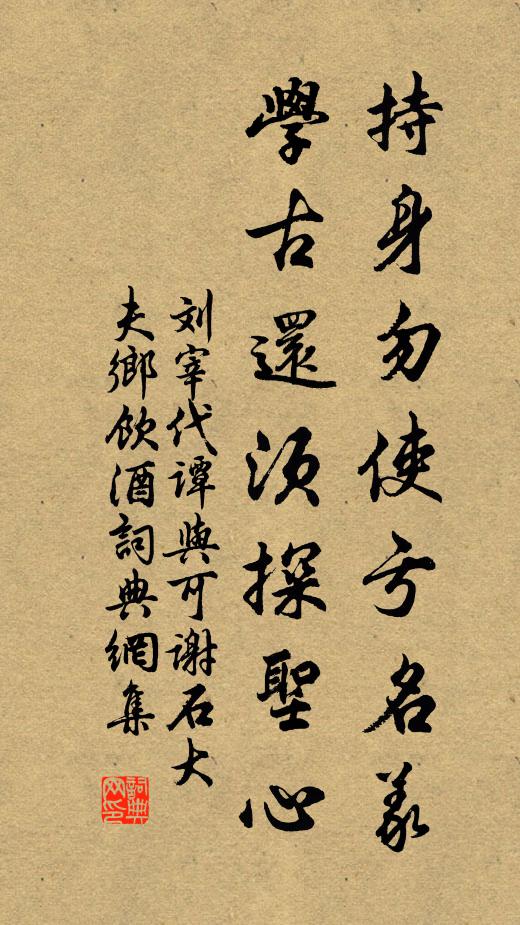 持身勿使亏名義
學古還須探聖心
刘宰代谭與可谢石大
夫鄉飲酒詞典網集
詞典網印